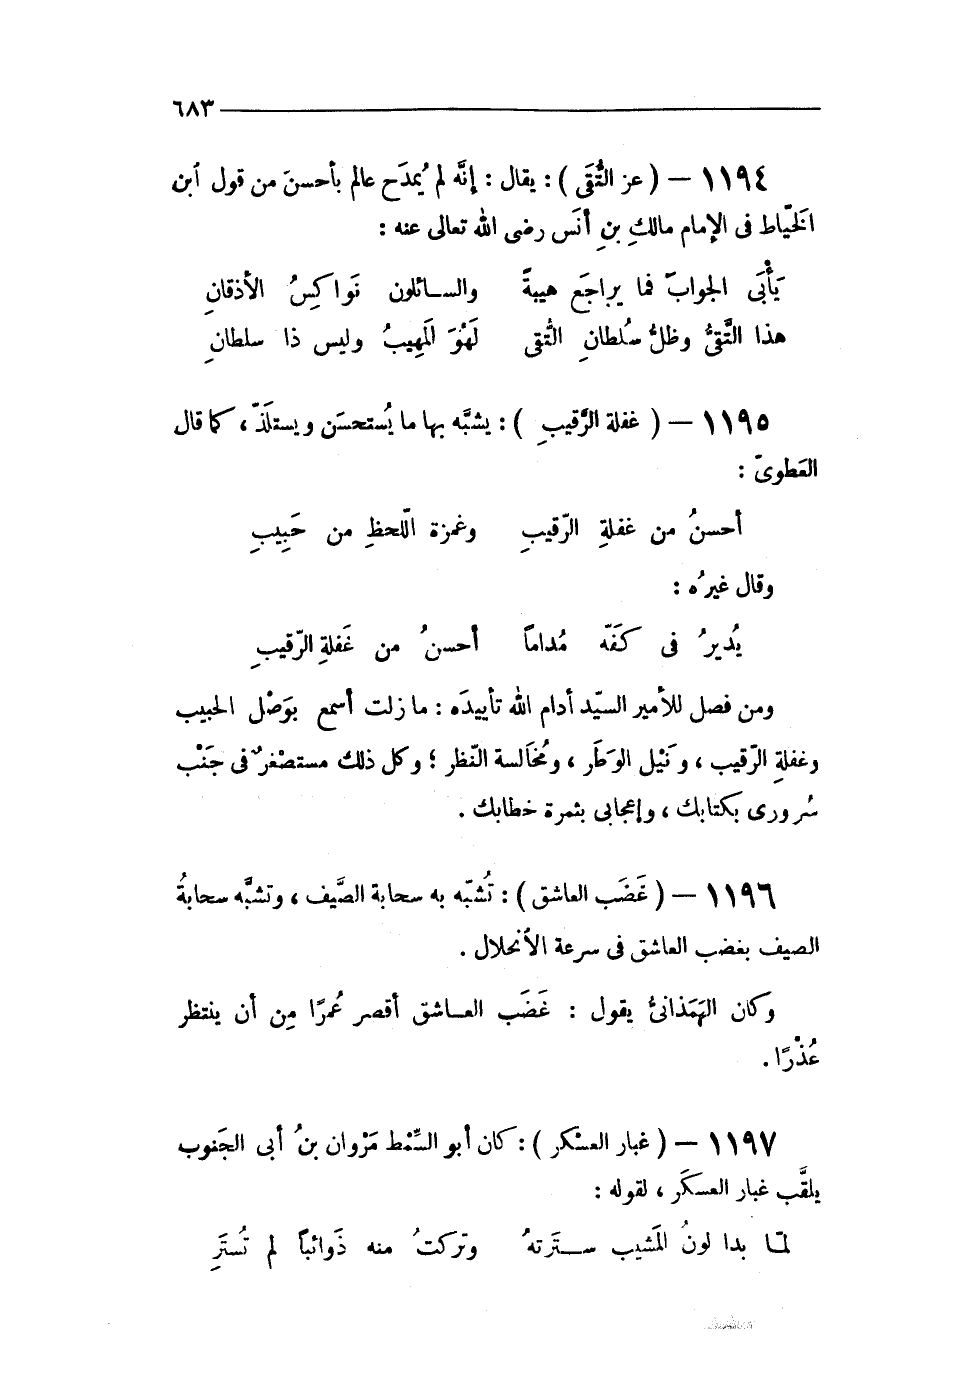 ٦٨٣
١١٩٤ — ( عز التُّقَى ) : يقال : إنَّه لم يُمدَح عالم بأحسنَ من قول ٱبن
الخيّاط فى الإمام مالكِ بنِ أنَس رضى الله تعالى عنه :
يَأْبَى الجوابَ فما يراجَع هيبةً والسـائلون نَواكِسُ الأذقانِ
هذا التَّقىُّ وظلُّ سُلطانِ التُقى لَهُوَ المَهِيبُ وليس ذا سلطانِ
١١٩٥ — ( غفلة الرَّقيبِ ) : يشبَّه بها ما يُستحسَن ويستلَذّ ، كما قال
العَطوىّ :
أحسنُ من غفلةِ الرّقيبِ وغمزة اللّحظِ من حَبِيبِ
وقال غيرُه :
يُديرُ فى كَفّه مُداماً أحسنُ من غَفلةِ الرّقيبِ
ومن فصل للأمير السيّد أدام الله تأييدَه : ما زلت أسمع بوَصْل الحبيب
وغفلةِ الرّقيب ، ونَيْل الوَطَر ، ومُخَالسة النّظر ؛ وكل ذلك مستصْغرٌ فى جَنْب
سُرورى بكتابك ، وإعجابى بثمرة خطابك .
١١٩٦ — ( غَضَب العاشق ) : تُشبّه به سحابة الصَّيف ، وتشبَّه سحابةُ
الصيف بغضب العاشق فى سرعة الأنحلال .
وكان الهَمَذانىُّ يقول : غَضَب العـاشق أقصر عُمرًا مِن أن ينتظر
عُذْرًا .
١١٩٧ — ( غبار العسْكر ) : كان أبو السِّمْط مَرْوان بنُ أبى الجَنوب
يلقَّب غبار العسكَر ، لقوله :
لمّـا بدا لونُ المَشيب ســتَرتهُ وتركتُ منه ذَوائباً لم تُستَرِ